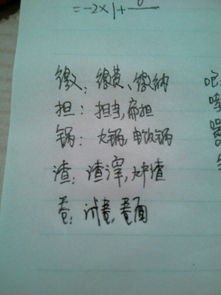 =-2×1+
缴：缴费、缴纳
担：担当,扁担
锅：火锅,电饭锅
渣：渣滓,炉渣
卷：试卷,卷面